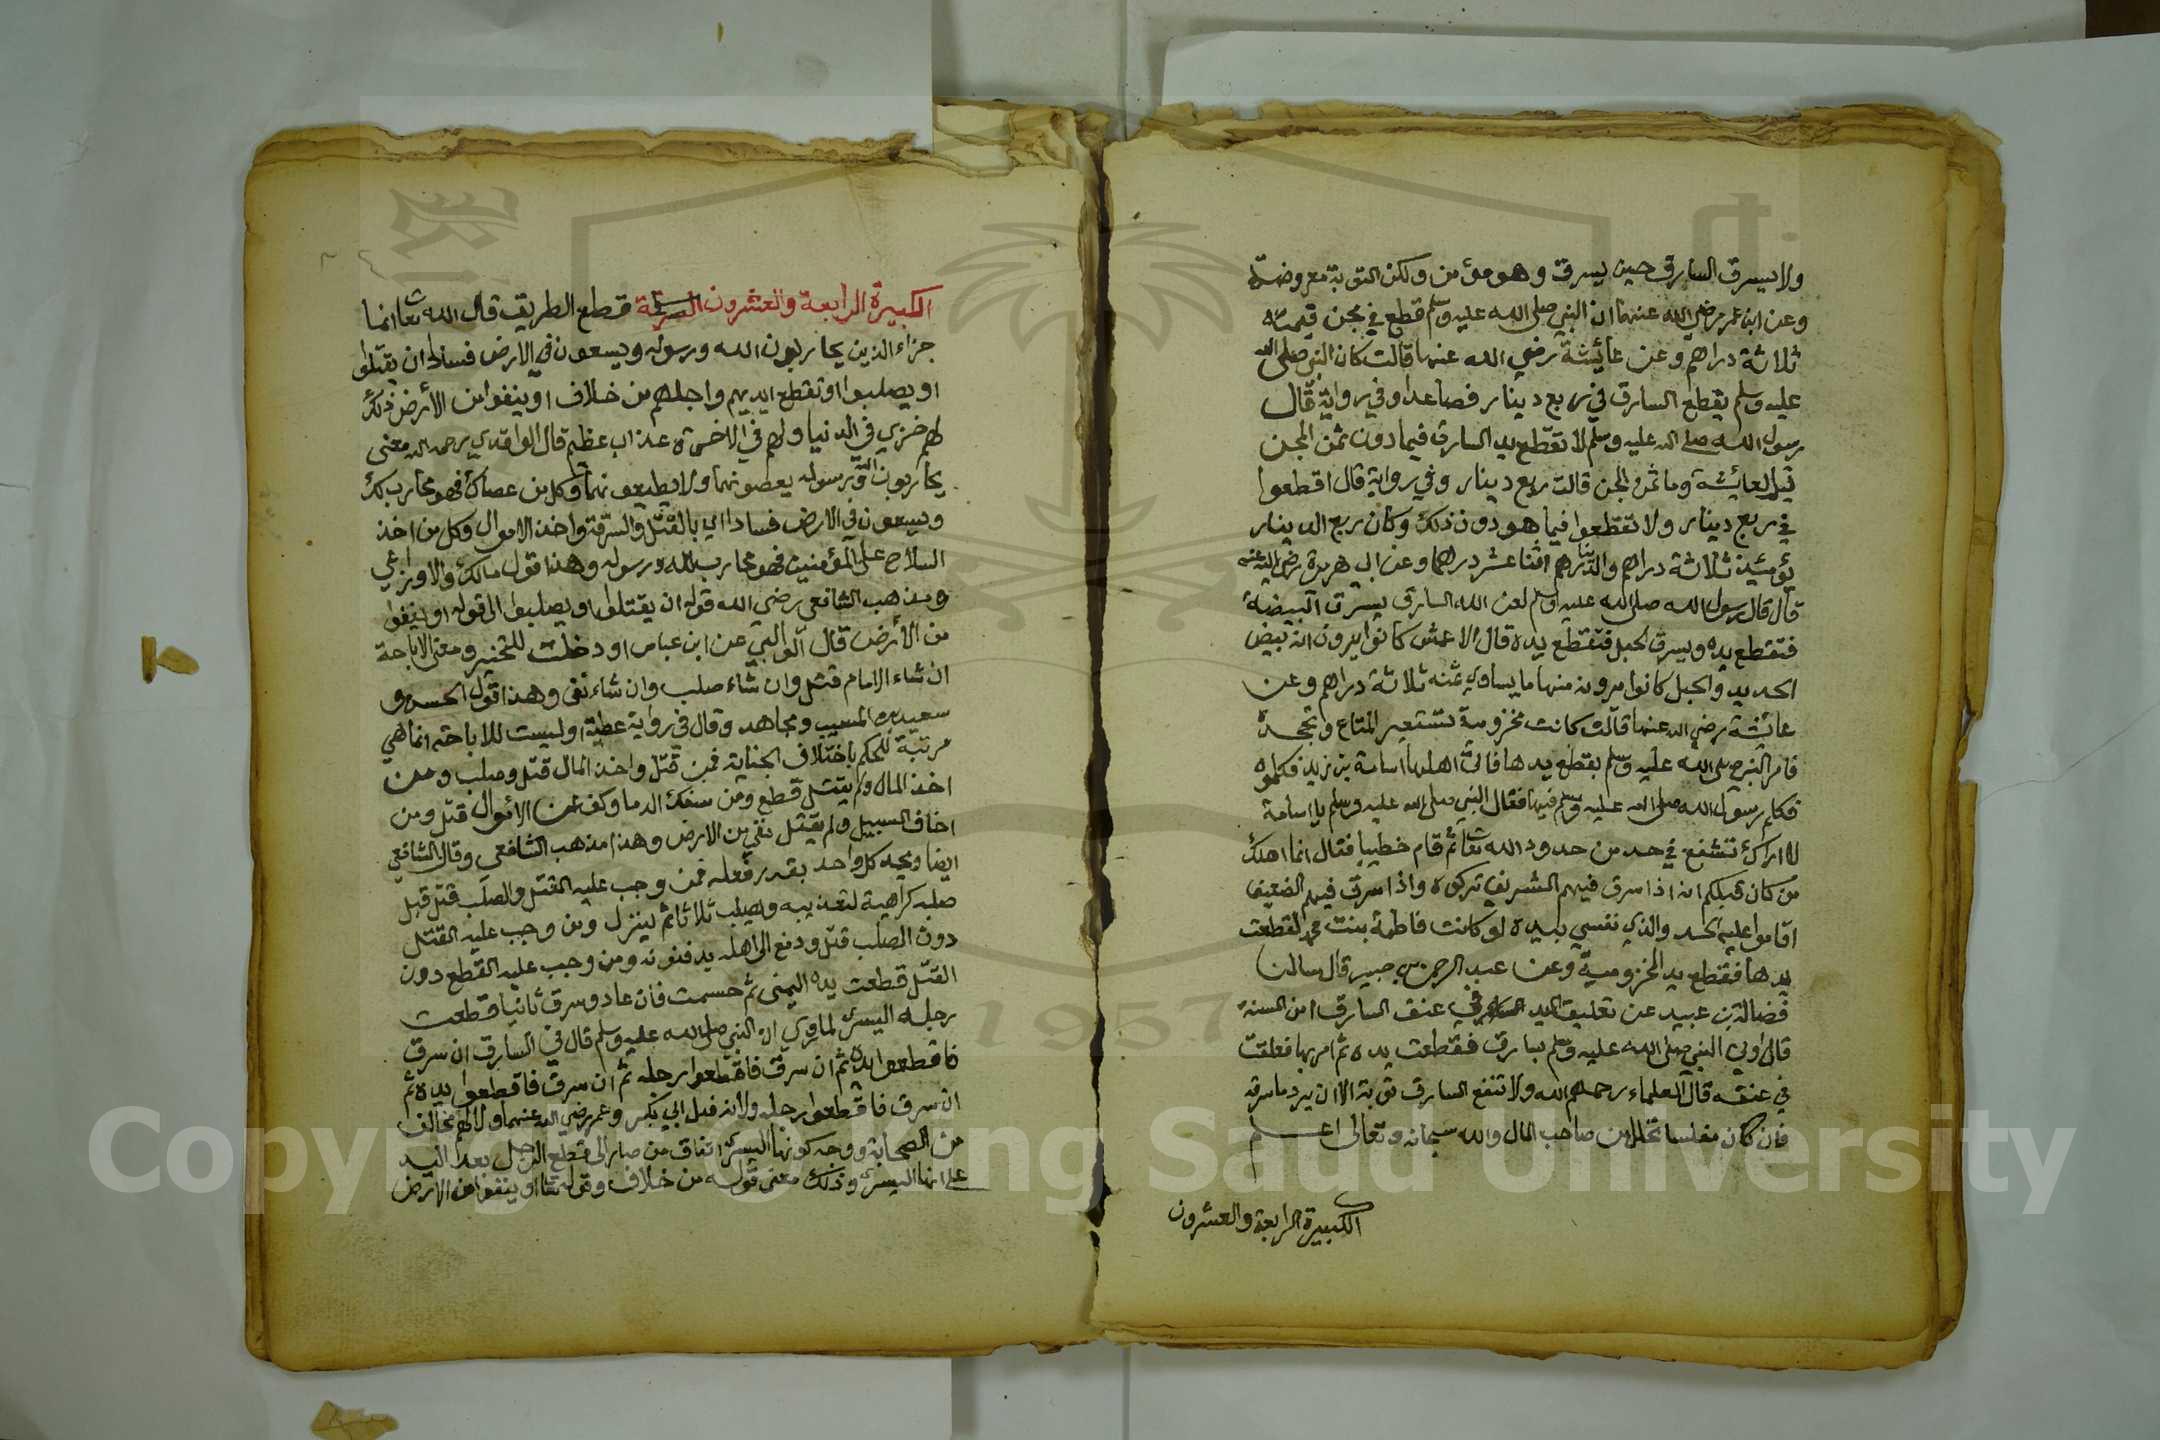 ولا يسرق السارق حين يسرق وهو مؤمن ولكن التوبة معروضة
وعن ابن عمر رضي الله عنهما ان النبي صلى الله عليه وسلم قطع في مجن قيمته
ثلاثة دراهم وعن عائشة رضي الله عنها قالت كان النبي صلى الله
عليه وسلم يقطع السارق في ربع دينار فصاعدا وفي رواية قال
رسول الله صلى الله عليه وسلم لا تقطع يد السارق فيما دون ثمن المجن
قيل لعائشة وما ثمن المجن قالت ربع دينار وفي رواية قال اقطعوا
في ربع دينار ولا تقطعوا فيما هو دون ذلك وكان ربع الدينار
يومئذ ثلاثة دراهم والدينار اثنا عشر درهما وعن ابي هريرة رضي الله عنه
قال قال رسول الله صلى الله عليه وسلم لعن الله السارق يسرق البيضة
فتقطع يده ويسرق الحبل فتقطع يده قال الاعمش كانوا يرون انه بيض
الحديد والحبل كانوا يرون منها ما يساوي ثمنه ثلاثة دراهم وعن
عائشة رضي الله عنها قالت كانت مخزومية تستعير المتاع وتجحده
فامر النبي صلى الله عليه وسلم بقطع يدها فاتى اهلها اسامة بن زيد فكلموه
فكلم رسول الله صلى الله عليه وسلم فيها فقال النبي صلى الله عليه وسلم يا اسامة
لا اراك تشفع في حد من حدود الله تعا ثم قام خطيبا فقال انما اهلك
من كان قبلكم انه اذا سرق فيهم الشريف تركوه واذا سرق فيهم الضعيف
اقاموا عليه الحد والذي نفسي بيده لو كانت فاطمة بنت محمد لقطعت
يدها فقطع يد المخزومية وعن عبد الرحمن بن جبير قال سالنا
فضالة بن عبيد عن تعليق اليد في عنق السارق امن السنة
قال اوتي النبي صلى الله عليه وسلم بسارق فقطعت يده ثم امر بها فعلقت
في عنقه قال العلماء رحمهم الله ولا تنفع السارق توبة الا ان يرد ما سرقه
فان كان مفلسا تحلل من صاحب المال والله سبحانه وتعالى اعلم
الكبيرة الرابعة والعشرون
الكبيرة الرابعة والعشرون السرقة قطع الطريق قال الله تعا انما
جزاء الذين يحاربون الله ورسوله ويسعون في الارض فسادا ان يقتلوا
او يصلبوا او تقطع ايديهم وارجلهم من خلاف او ينفوا من الأرض ذلك
لهم خزي في الدنيا ولهم في الاخرة عذاب عظيم قال الواقدي رحمه الله معنى
يحاربون الله ورسوله يعصونهما ولا يطيعونهما وكل من عصاك فهو محارب لك
ويسعون في الارض فسادا اي بالقتل والسرقة واخذ الاموال وكل من اخذ
السلاح على المؤمنين فهو محارب لله ورسوله وهذا قول مالك والاوزاعي
ومذهب الشافعي رضي الله قوله ان يقتلوا او يصلبوا الى قوله او ينفوا
من الأرض قال الوالبي عن ابن عباس او دخلت للتخيير ومعنى الاباحة
ان شاء الامام قتل وان شاء صلب وان شاء نفى وهذا قول الحسن و
سعيد بن المسيب ومجاهد وقال في رواية عطية او ليست للاباحة انما هي
مرتبة للحكم باختلاف الجناية فمن قتل واخذ المال قتل وصلب ومن
اخذ المال ولم يقتل قطع ومن سفك الدما وكف عن الاموال قتل ومن
اخاف السبيل ولم يقتل نفي من الارض وهذا مذهب الشافعي وقال الشافعي
ايضا ويحد كل واحد بقدر فعله فمن وجب عليه القتل والصلب قتل قبل
صلبه كراهية لتعذيبه ويصلب ثلاثا ثم ينزل ومن وجب عليه القتل
دون الصلب قتل ودفع الى اهله يدفنونه ومن وجب عليه القطع دون
القتل قطعت يده اليمنى ثم حسمت فان عاد وسرق ثانيا قطعت
رجله اليسرى لما روي ان النبي صلى الله عليه وسلم قال في السارق ان سرق
فاقطعوا يده ثم ان سرق فاقطعوا رجله ثم ان سرق فاقطعوا يده ثم
ان سرق فاقطعوا رجله ولانه فعل ابي بكر وعمر رضي الله عنهما ولا لهم مخالف
من الصحابة ووجه كونها اليسرى اتفاق من صار الى قطع الرجل بعد اليد
على انها اليسرى وذلك معنى قوله من خلاف وقوله تعا او ينفوا من الارض
Copyright © King Saud University
1957